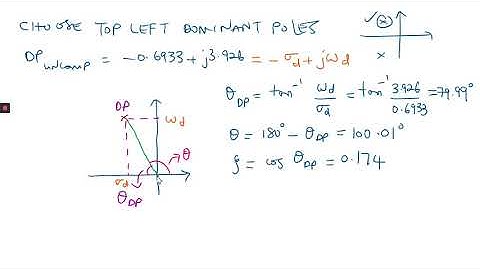 CHOOSE TOP LEFT DOMINANT POLES
DP uncomp = -0.6933 + j3.926 = -σd + jωd
θDP = tan⁻¹ ωd/σd = tan⁻¹ 3.926/0.6933 = 79.99°
θ = 180° - θDP = 100.01°
ζ = cos θDP = 0.174
DP
ωd
θ
σd
θDP